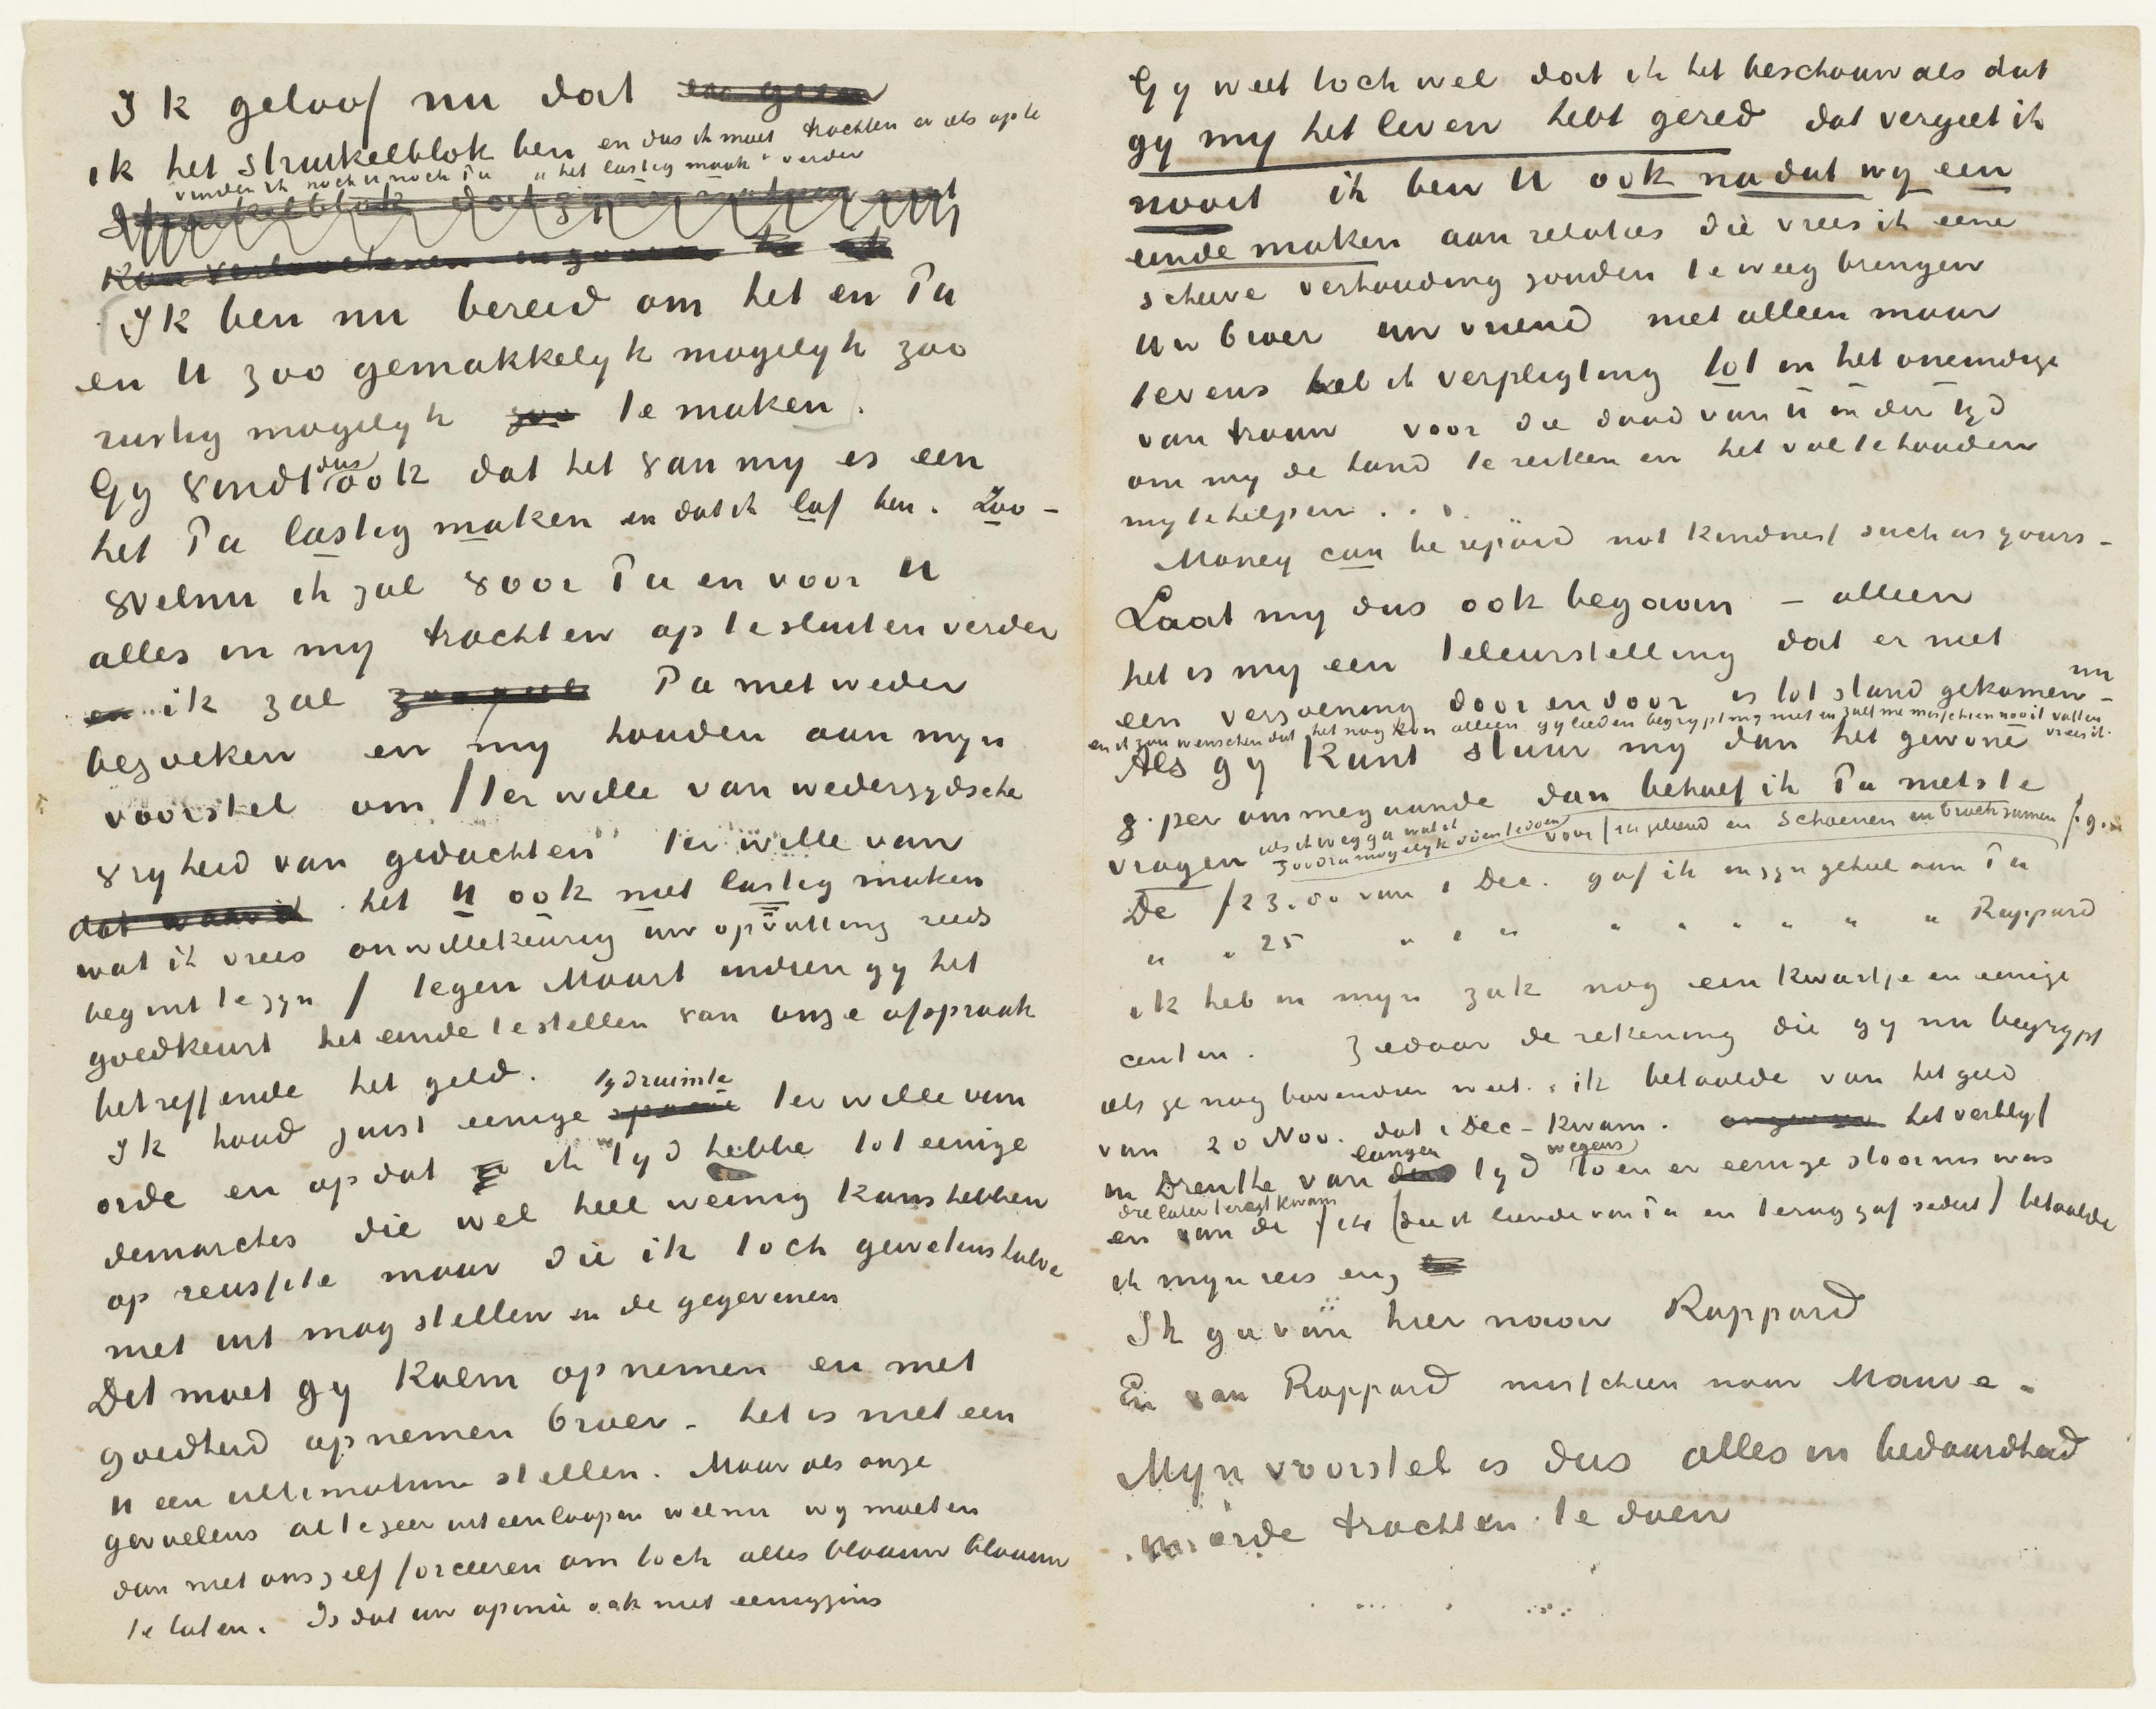 Ik geloof nu dat
ik het struikelblok ben en dus ik moet trachten er iets op te
vinden ik noch U noch Pa " het lastig maak " verder
Ik ben nu bereid om het en Pa
en U zoo gemakkelyk mogelyk zoo
rustig mogelyk zoo te maken.
Gy vindt dus ook dat het van my is een
het Pa lastig maken en dat ik laf ben. Zoo-
welnu ik zal voor Pa en voor U
alles in my trachten op te sluiten verder
en ik zal Pa niet weder
bezoeken en my houden aan myn
voorstel om (ter wille van wederzydsche
vryheid van gedachten ter wille van
dat waar ik het U ook niet lastig maken
wat ik vrees onwillekeurig uw opvatting reeds
begint te zyn) tegen Maart indien gy het
goedkeurt het einde te stellen van onze afspraak
betreffende het geld.
tydruimte
Ik houd juist eenige ter wille van
orde en opdat ik tyd hebbe tot eenige
demarches die wel heel weinig kans hebben
op reussite maar die ik toch gewetenshalve
niet uit mag stellen in de gegevenen
Dit moet gy kalm opnemen en met
goedheid opnemen broer - het is niet een
U een ultimatum stellen. Maar als onze
gevoelens al te zeer uiteenloopen welnu wy moeten
dan niet ons zelf forceeren om toch alles blaauw blaauw
te laten. Is dat uw opinie ook niet eenigzins
Gy weet toch wel dat ik het beschouw als dat
gy my het leven hebt gered dat vergeet ik
nooit ik ben U ook na dat wy een
einde maken aan relaties die vrees ik eene
scheve verhouding zouden te weeg brengen
uw broer uw vriend niet alleen maar
tevens heb ik verpligting tot in het oneindige
van trouw voor die daad van U in der tyd
om my de hand te reiken en het vol te houden
my te helpen . . .
Money can be repaid not kindness such as yours -
Laat my dus ook begaan - alleen
het is my een teleurstelling dat er niet
nu
een verzoening door en door is tot stand gekomen -
en ik zou wenschen dat het nog kon alleen gylieden begrypt my niet en zult me misschien nooit vatten
vrees ik.
Als gy kunt stuur my dan het gewone
z. per ommegaande dan behoef ik Pa niets te
vragen als ik wegga wat ik zoodra mogelyk dien te doen voor
De f 23.80 van 1 Dec. gaf ik in zyn geheel aan Pa
" " 25 " 1 " " " " " " " Rappard
ik heb in myn zak nog een kwartje en eenige
centen. Ziedaar de rekening die gy nu begrypt
als ge nog bovendien weet. ik betaalde van het geld
van 20 Nov. dat 1 Dec - kwam. het verblyf
in Drenthe van langen tyd wegens toen er eenige stoornis was
die later teregt kwam
en van de f 14 (die ik leende van Pa en terug gaf sedert) betaalde
ik myn reis enz
Ik ga van hier naar Rappard
En van Rappard misschien naar Mauve.
Myn voorstel is dus alles in bedaardheid
in orde trachten te doen